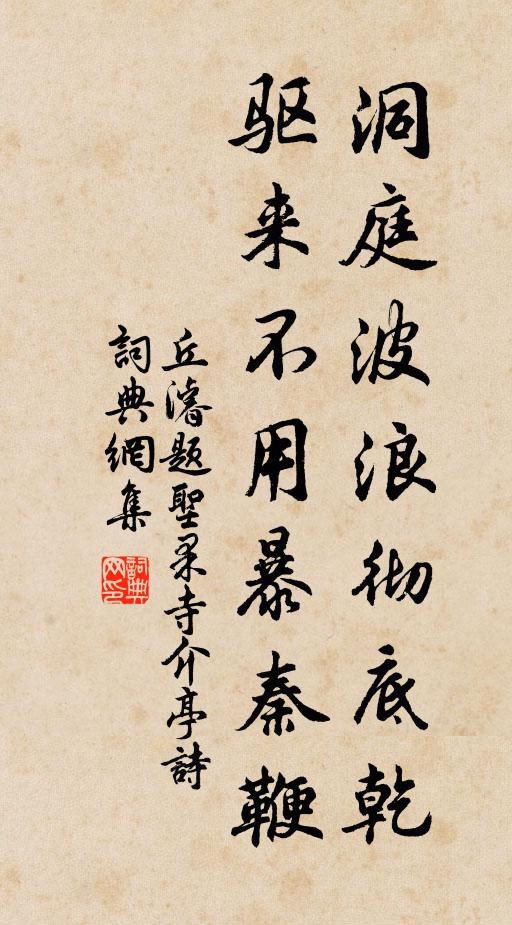 洞庭波浪彻底乾
驱来不用暴秦鞭
丘濬题聖果寺介亭詩
詞典網集
詞典网印